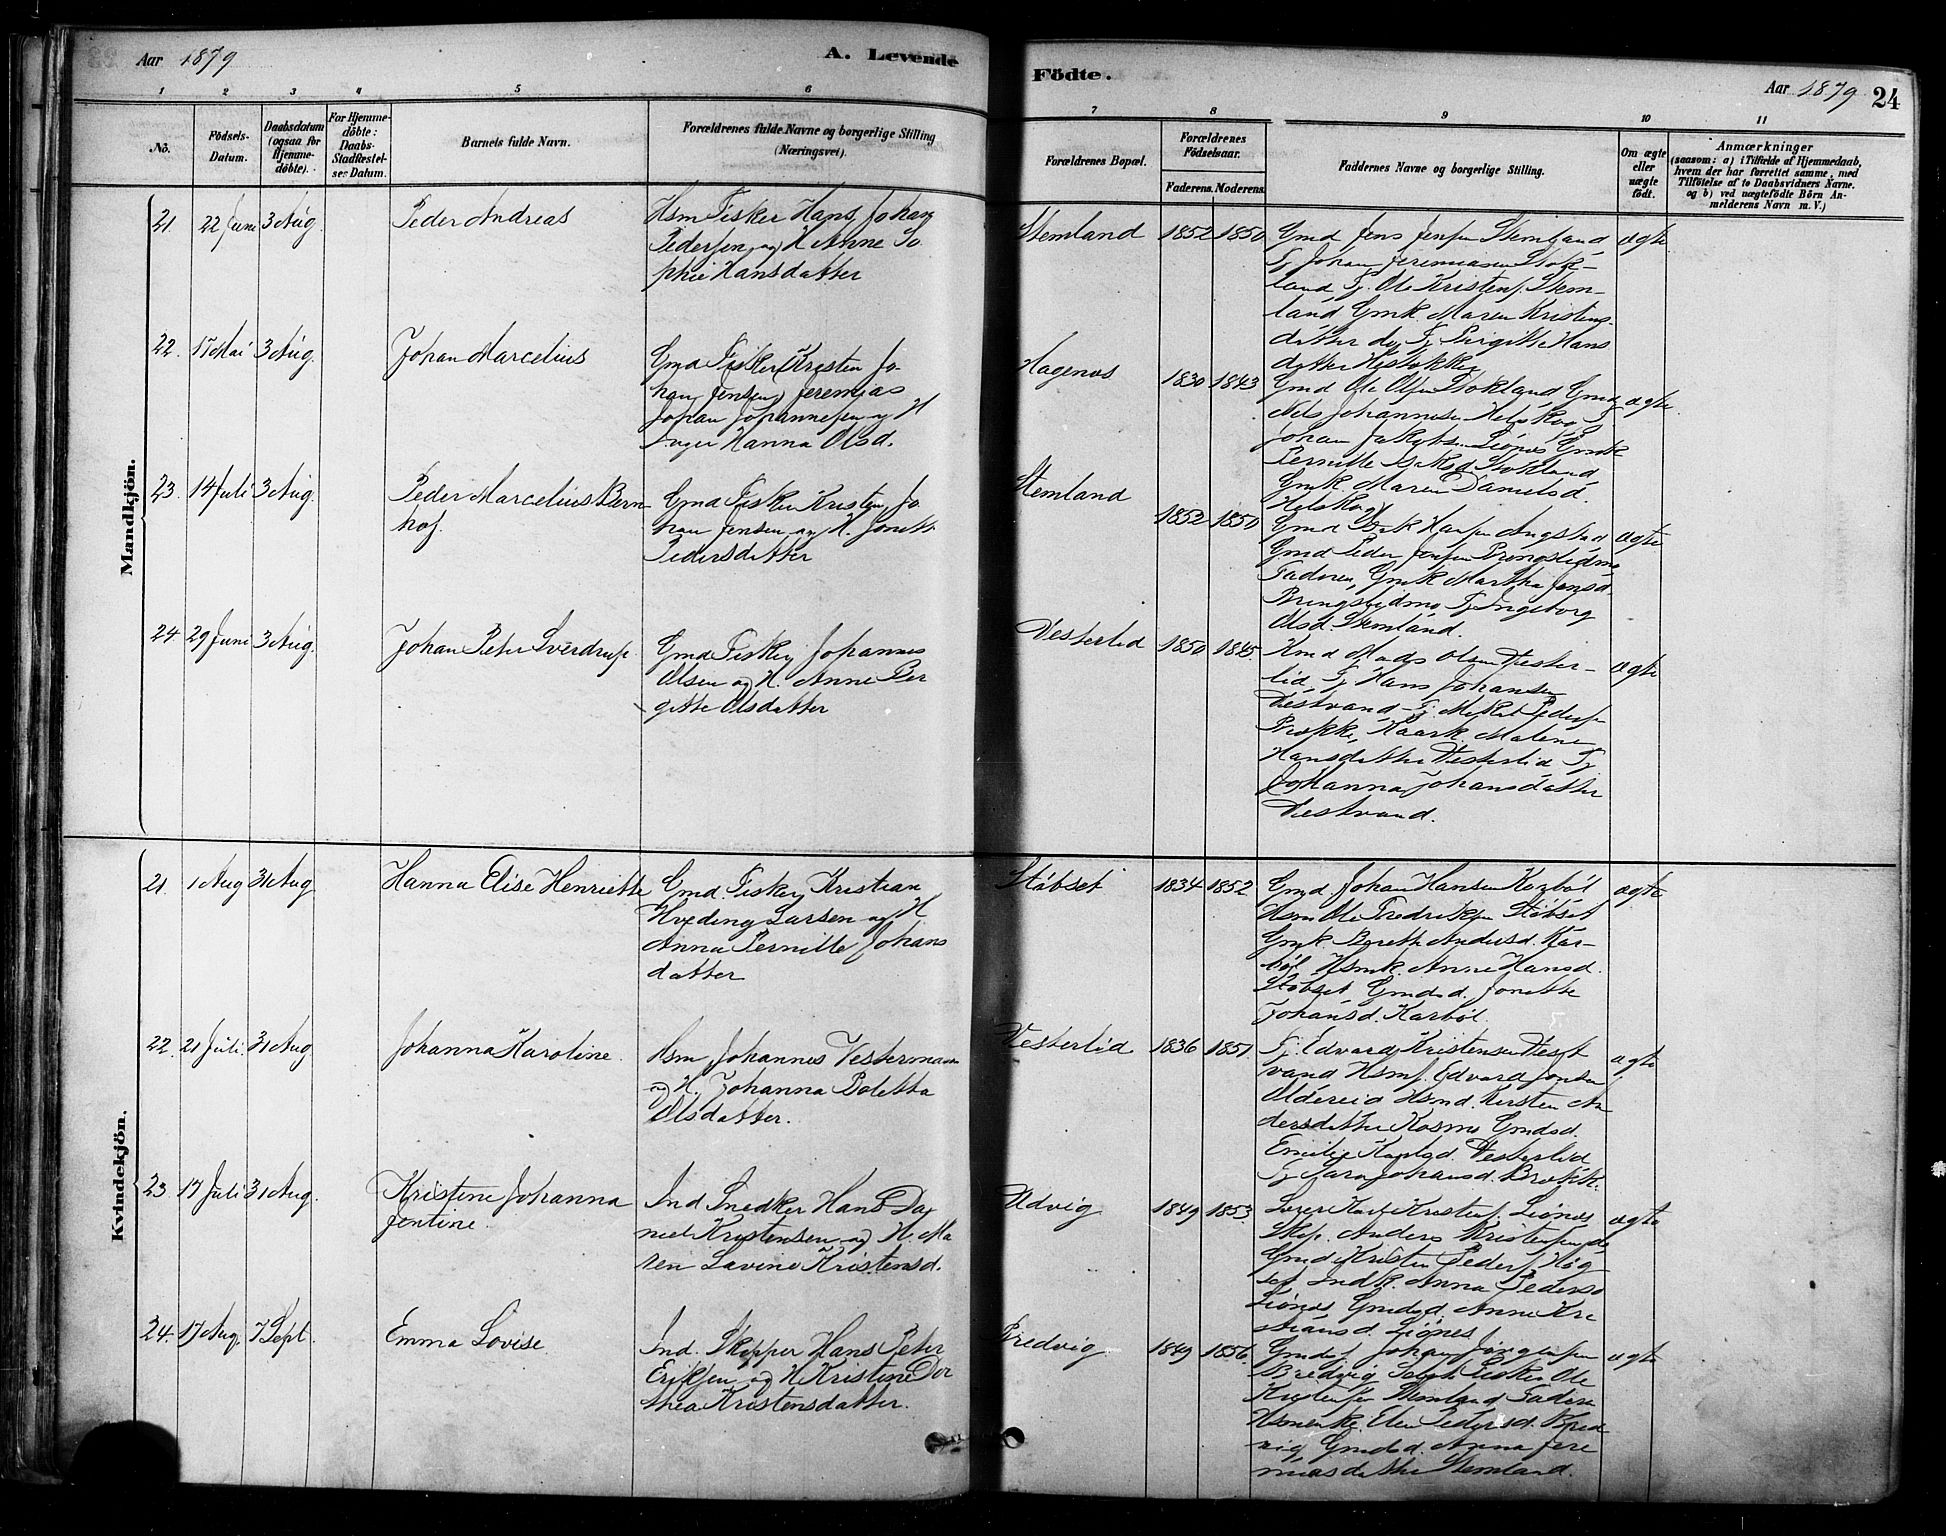 Aar 1879
A. Levende
Födte.
Aar 1879
24
1 2 3 4 5 6 7 8 9 10 11
No.
Födsels-Datum.
Daabsdatum (ogsaa for Hjemme-döbte).
For Hjemme-döbte: Daabs-Stadfæstel-ses Datum.
Barnets fulde Navn.
Forældrenes fulde Navne og borgerlige Stilling (Næringsvei).
Forældrenes Bopæl.
Forældrenes Födselsaar.
Faderens. Moderens.
Faddernes Navne og borgerlige Stilling.
Om ægte eller uægte födt.
Anmærkninger
(saasom: a) i Tilfælde af Hjemmedaab,
hvem der har forrettet samme, med
Tilföielse af to Daabsvidners Navne.
og b) ved uægtefödte Börn An-
melderens Navn m. V.)
Mandkjön.
21. 22 Juni 3 Aug
Peder Andreas
Hsm Fisker Hans Johan
Pedersen og H Anne So
phie Hansdatter
Stemland 1852 1850
Gmd Jens Jensen Stemland
Tj Johan Jeremiasen Stok-
land Tj. Ole Kristens. Stem-
land Gmk. Maren Kristens-
datter do Tj Birgitte Hans
datter
ægte
22. 17 Mai 3 Aug.
Johan Marcelius
Gmd Fisker (Kristen Jo-
han Jensen) Jeremias
Johan Johannesen og H
Inger Hanna Olsd.
Hagenes 1830 1843
Gmd Ole Olsen Stokland Gmd
Nels Johannesen Helskog
Johan Jakobsen Liónes Gmk
Pernille Stokland
Gmk. Maren Danielsd.
Helskog
ægte.
23. 14 Juli 3 Aug.
Peder Marcelius Bern
hof.
Gmd Fisker Kristen Jo
han Jensen og H. Jonett
Pedersdatter
Stemland
1852 1850
Gmd Hansen Angstad
Gmd Peder Jensen Bringslidmo
Faderen, Gmk Martha Jensd.
Bringslidmo Tj Ingeborg
Olsd. Stemland.
ægte
24. 29 Juni 3 Aug.
Johan Peter Sverdrup.
Gmd Fisker Johannes
Olsen og H. Anne Ber
gitte Olsdatter
Vesterlid 1850 1845.
Kmd Mads Olsen Vester-
lid Tj Hans Johansen
Vestvand Tj. Mikal Pedersen
Brække, Kaark. Malene
Hansdatter Vesterlid Tj
Johanna Johansdatter
Vestvand.
ægte
Kvindekjön.
21. 1 Aug 31 Aug
Hanna Elise Henriette
Gmd. Fisker Kristian
Hveding Larsen og H
Anna Pernille Johans
datter
Stóbset 1834 1852
Gmd. Johan Hansen Korból
Hsm Ole Fredriksen Stóbset
Gmk. Berethe Andersd. Kar-
ból Hsmk. Anne Hansd.
Stóbset Gmdsd. Jonette
Johansd. Karból.
ægte
22. 21 Juli. 31 Aug
Johanna Karoline.
Hsm Johannes Vestermann
og H. Johanna Boletta
Olsdatter.
Vesterlid 1836 1851
Tj. Edvard Kristensen Vest
vand Hsmf. Edvard Jonsen
Oldereid Hsmd. Kirsten An
dersdatter Kosmo Gmdsd.
Emilie Vesterlid
Tj Sara Johansd. Brække.
ægte
23. 17 Juli 31 Aug.
Kristine Johanna
Jentine.
Ind Snedker Hans Da
niel Kristensen og H. Ma
ren Lavine Kristensd.
Udvig 1849 1853
Kristens. Liónes
Skp. Anders Kristensen do
Gmd Kristen Peders. Hög
set Indk. Anna Pedersd
Liónes Gmdsd Anne Kri
stiansd. Liónes
ægte
24. 17 Aug. 7 Sept.
Emma Lovise.
Ind. Skipper Hans Peter
Eriksen og H Kristine Dor
thea Kristensdatter.
Bredvig 1849 1856.
Johan Jörgensen
Bredvig Fisker Ole
Kristensen Stemland Faderen
Elen Pedersd. Bred
vig Gmdsd. Anna Jere
miasdatter Stemland.
ægte